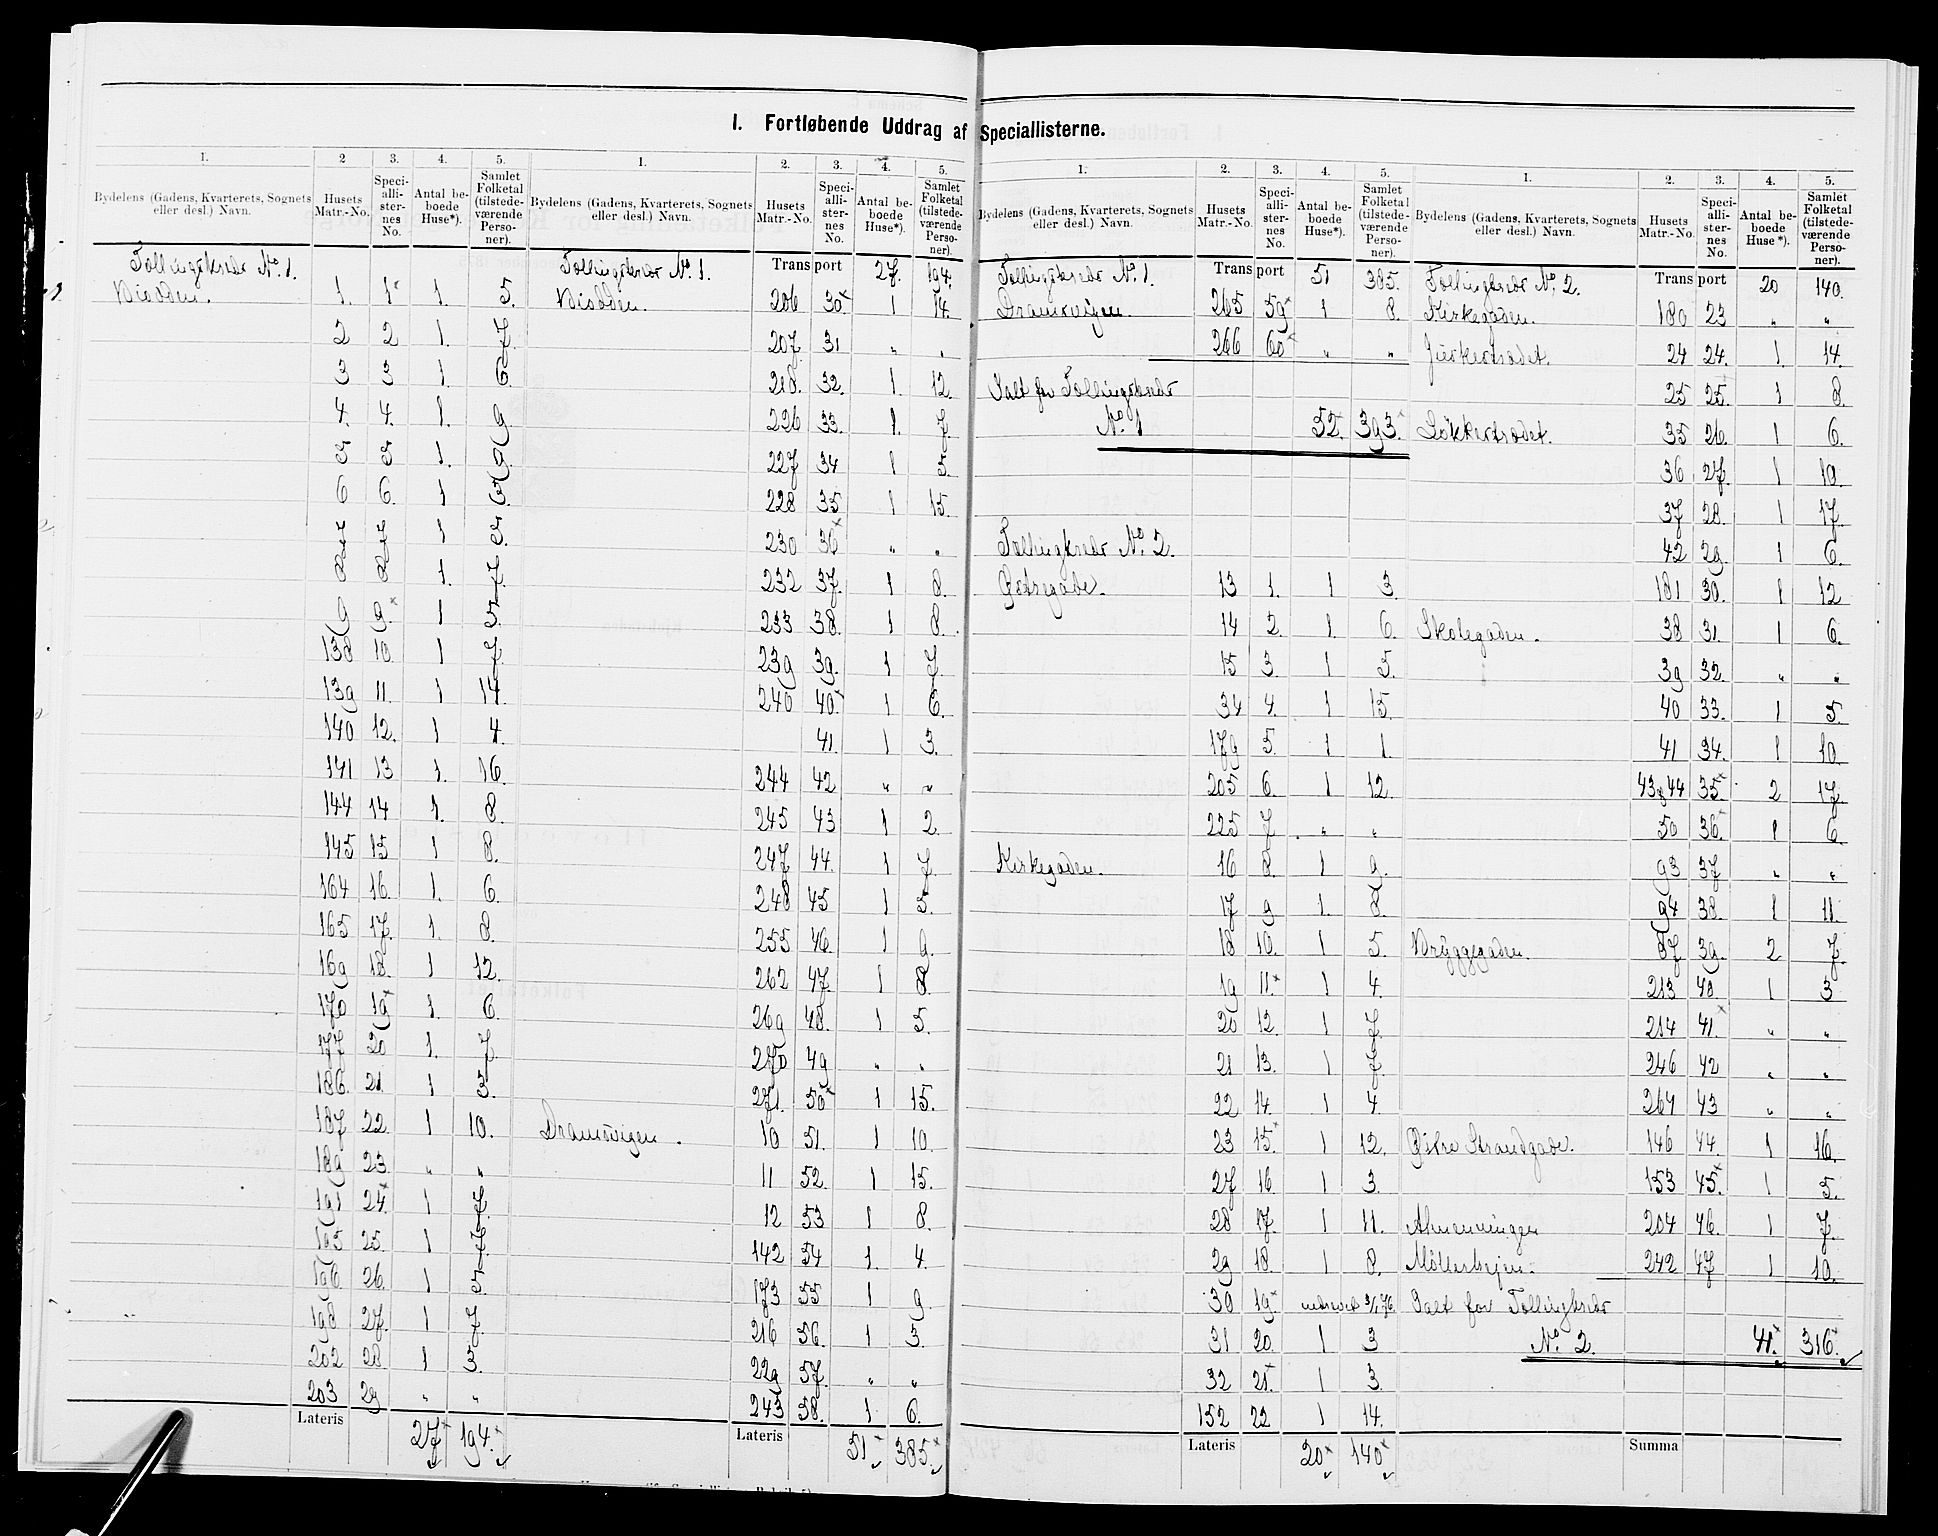 I. Fortløbende Uddrag af Speciallisterne.
1. 2 3. 4. 5.
Bydelens (Gadens, Kvarterets, Sognets eller desl.) Navn. Husets Matr.-No. Specialli-sternes No. Antal beboede Huse*). Samlet Folketal (tilstedeværende Personer).
Tællingskreds No. 1.
1. 1 1. 5.
2 2 1. 7.
3 3 1. 6.
4. 4. 1. 9
5 5 1.
6 6. 1
7 7 1 5.
8 8 1. 7.
9 9. 1 5.
138 10. 1 7.
139 11. 1 14.
140 12. 1 4.
141 13 1. 16.
144 14 1. 8.
145 15 1 8.
164 16. 1. 6.
165 17. 1. 8.
169 18. 1 12.
170 19 1. 6.
177 20 1. 7
186. 21 1 3.
187 22 1 10.
189 23 " "
191 24 1 7.
195 25. 1 7.
196 26. 1 5.
198 27. 1 7.
202 28 1 3.
203 29 " "
Lateris 27 194.
1. 2. 3. 4. 5.
Bydelens (Gadens, Kvarterets, Sognets eller desl.) Navn. Husets Matr.-No. Specialli-sternes No. Antal beboede Huse*). Samlet Folketal (tilstedeværende Personer).
Tællingskreds No. 1. Transport 27. 194.
206 30 1 14.
207 31 " "
218. 32. 1. 12.
226 33. 1. 7.
227 34 1 5.
228 35 1 15.
230 36 " "
232 37. 1 8.
233 38. 1 8.
239 39. 1 7.
240 40. 1 6.
41. 1 3.
244 42 " "
245 43 1 2.
247 44. 1 7
248 45 1 5.
255 46. 1 9.
262 47. 1 8.
269 48. 1 5.
270 49 " "
271. 50 1 15.
Dramsvigen. 10 51. 1 10.
11 52. 1 15.
12 53 1 8.
142 54 1. 4.
173 55 1 9
216 56. 1 3.
229 57. " "
243 58. 1 6.
Lateris 51 385.
1. 2. 3. 4. 5.
Bydelens (Gadens, Kvarterets, Sognets eller desl.) Navn. Husets Matr.-No. Specialli-sternes No. Antal beboede Huse*). Samlet Folketal (tilstedeværende Personer).
Tællingskreds No. 1. Transport 51 385.
Dramsvigen. 265 59 1 8.
266 60 " "
Ialt for Tællingskreds
No. 1 52. 393.
Tællingskreds No. 2.
13 1. 1 3.
14 2. 1. 6.
15 3 1 5.
34 4. 1 15.
179 5. 1 1.
205 6. 1 12.
225 7 " "
Kirkegaden. 16 8. 1 9.
17 9 1. 8.
18 10. 1 5.
19 11. 1 4.
20 12. 1 7.
21 13. 1 7.
22 14. 1 4
23 15. 1 12.
27 16 1 3.
28 17. 1 11.
29 18. 1 8.
30 19. nedrevet 3/1 76.
31 20. 1 3
32 21. 1 3.
152 22 1 14.
Lateris 20 140
1. 2. 3. 4. 5.
Bydelens (Gadens, Kvarterets, Sognets eller desl.) Navn. Husets Matr.-No. Specialli-sternes No. Antal beboede Huse*). Samlet Folketal (tilstedeværende Personer).
Tællingskreds No. 2. Transport 20 140.
Kirkegaden. 180 23 " "
24 24. 1. 14.
25 25. 1 8.
35 26. 1 6.
36 27. 1 10.
37 28. 1 17.
42 29. 1 6.
181 30. 1 12
Skolegaden. 38 31. 1 6.
39 32. " "
40 33. 1 5.
41 34. 1 10.
43 & 44 35. 2 17.
50 36. 1 6.
93 37 " "
94 38. 1 11.
Bryggegaden. 87 39. 2 7.
213 40. 1 3
214 41. " "
246 42 " "
264 43 " "
Østre Strandgade. 146 44. 1 16.
153 45. 1 5.
Almenningen 204 46. 1 7.
242 47 1 10.
Ialt for Tællingkreds
No. 2. 41. 316.
Summa